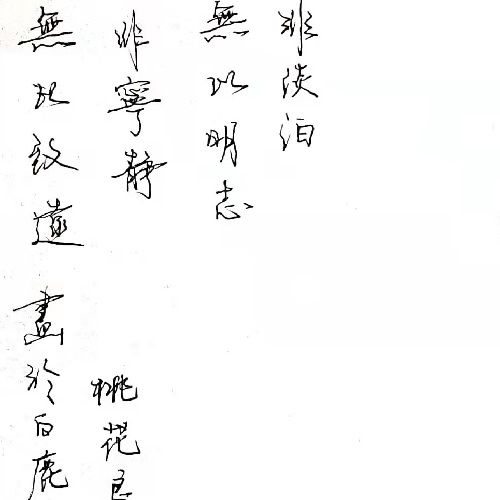 非淡泊
無以明志
非寧静
無以致遠
桃花
畫於白鹿